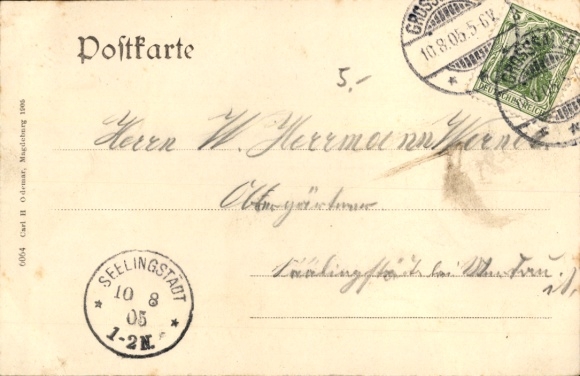 Postkarte
GROSSE
10.8.05.5-6V.
GROSSE
DEUTSCHES REICH
5.-
Herrn W. Herrmann Werner
Obergärtner
Seelingstädt bei
SEELINGSTADT
10 8
05
1-2N.
6064 Carl H Odemar, Magdeburg 1905